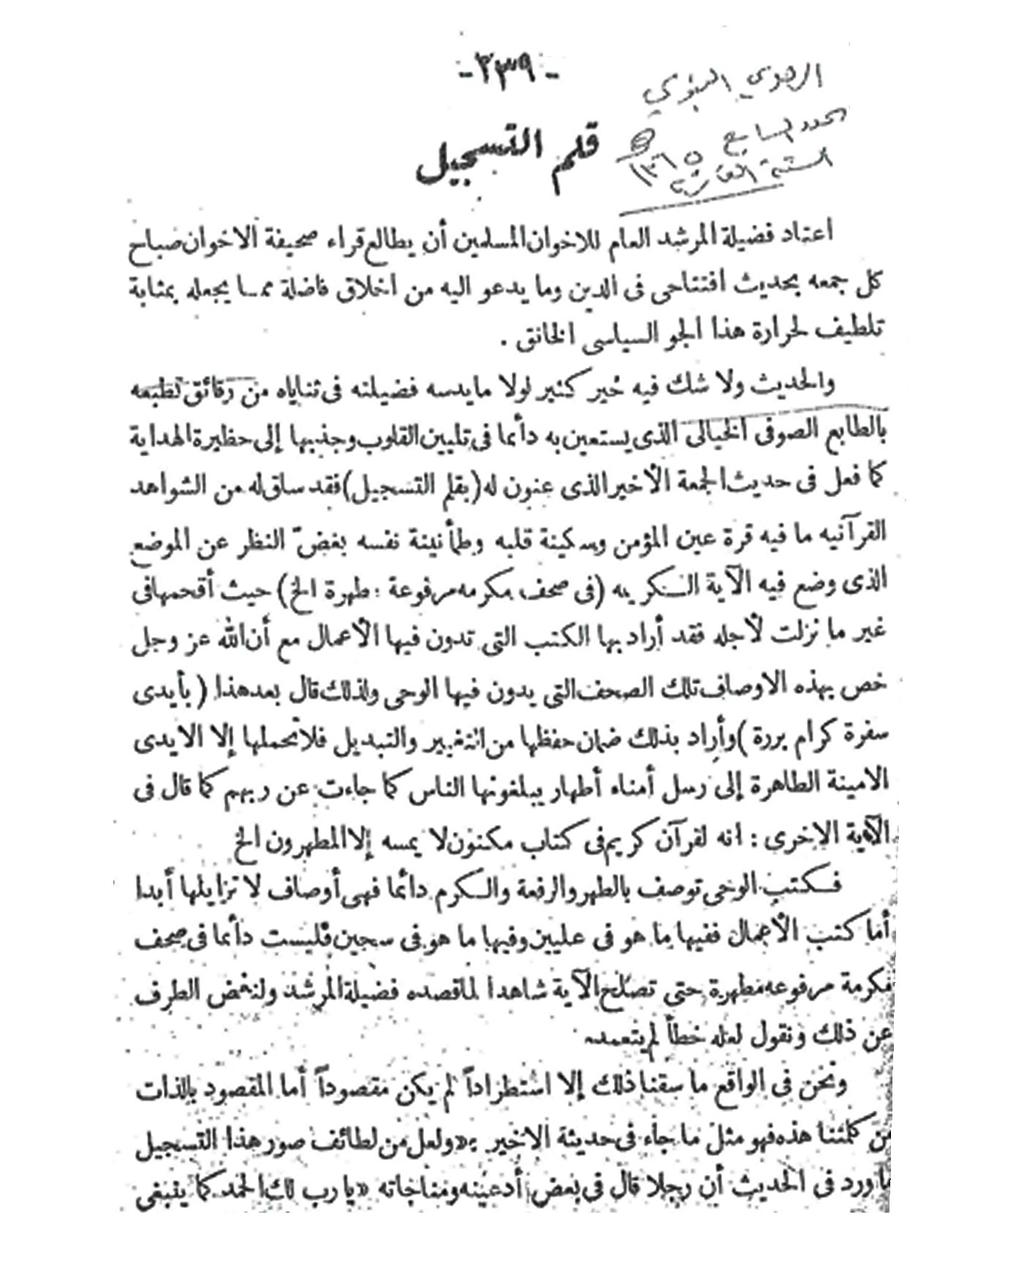 -٣٣٩-
الهدي النبوي
العدد السابع
السنة العاشرة ١٣٦٥
قلم التسجيل
اعتاد فضيلة المرشد العام للاخوان المسلمين أن يطالع قراء صحيفة الاخوان صباح
كل جمعه بحديث افتتاحى فى الدين وما يدعو اليه من أخلاق فاضلة ممـا يجعله بمثابة
تلطيف لحرارة هذا الجو السياسى الخانق .
والحديث ولا شك فيه خير كثير لولا ما يدسه فضيلته فى ثناياه من رقائق تطبعه
بالطابع الصوفى الخيالى الذى يستعين به دائما فى تليين القلوب وجذبها إلى حظيرة الهداية
كما فعل فى حديث الجمعة الأخير الذى عنون له (بقلم التسجيل) فقد ساق له من الشواهد
القرآنيه ما فيه قرة عين المؤمن وسكينة قلبه وطمأنينة نفسه بغضّ النظر عن الموضع
الذى وضع فيه الآية الـكريمه (فى صحف مكرمه مرفوعة مطهرة الخ) حيث أقحمها فى
غير ما نزلت لأجله فقد أراد بها الكتب التى تدون فيها الأعمال مع أن الله عز وجل
خص بهذه الاوصاف تلك الصحف التى يدون فيها الوحى ولذلك قال بعد هذا (بأيدى
سفرة كرام بررة) وأراد بذلك ضمان حفظها من التغيير والتبديل فلا تحملها إلا الايدى
الامينة الطاهرة إلى رسل أمناء أطهار يبلغونها الناس كما جاءت عن ربهم كما قال فى
الآية الاخرى : انه لقرآن كريم فى كتاب مكنون لا يمسه إلا المطهرون الخ
فـكتب الوحى توصف بالطهر والرفعة والـكرم دائما فهى أوصاف لا تزايلها أبدا
أما كتب الأعمال ففيها ما هو فى عليين وفيها ما هو فى سجين فليست دائما فى صحف
مكرمة مرفوعه مطهرة حتى تصلح الآية شاهدا لما قصده فضيلة المرشد ولنغض الطرف
عن ذلك ونقول لعله خطأ لم يتعمده
ونحن فى الواقع ما سقنا ذلك إلا استطراداً لم يكن مقصوداً أما المقصود بالذات
من كلمتنا هذه فهو مثل ما جاء فى حديثة الاخير : «ولعل من لطائف صور هذا التسجيل
ما ورد فى الحديث أن رجلا قال فى بعض أدعيته ومناجاته «يا رب لك الحمد كما ينبغى